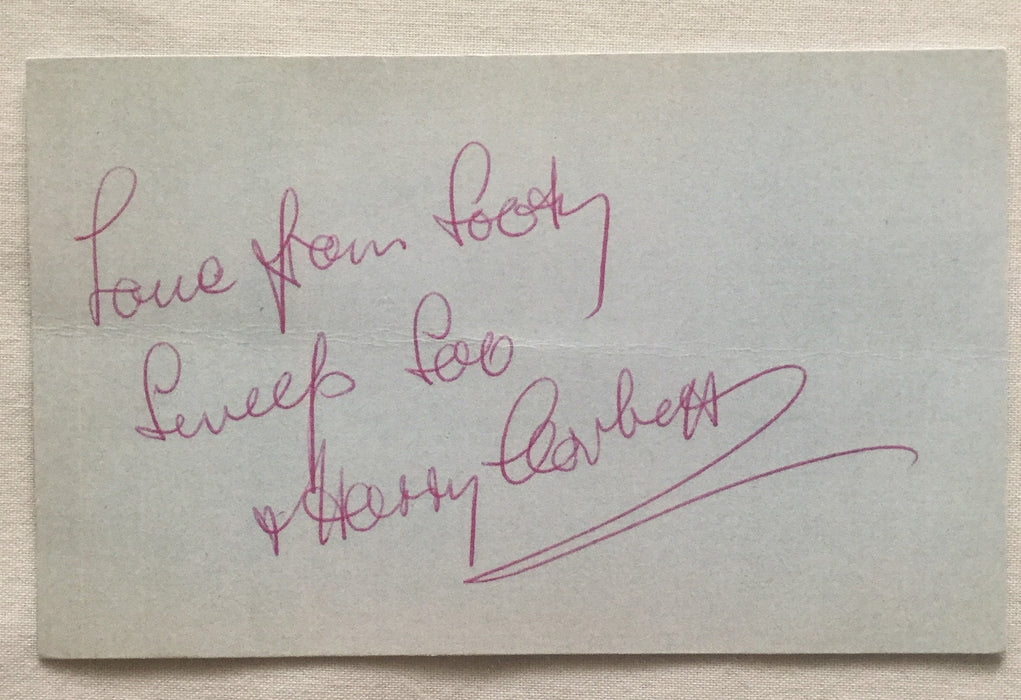 Love from Sooty
Sweep Soo
+ Harry Corbett